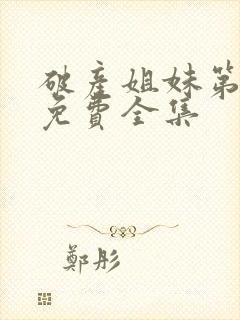 破产姐妹第
免費全集
鄭彤